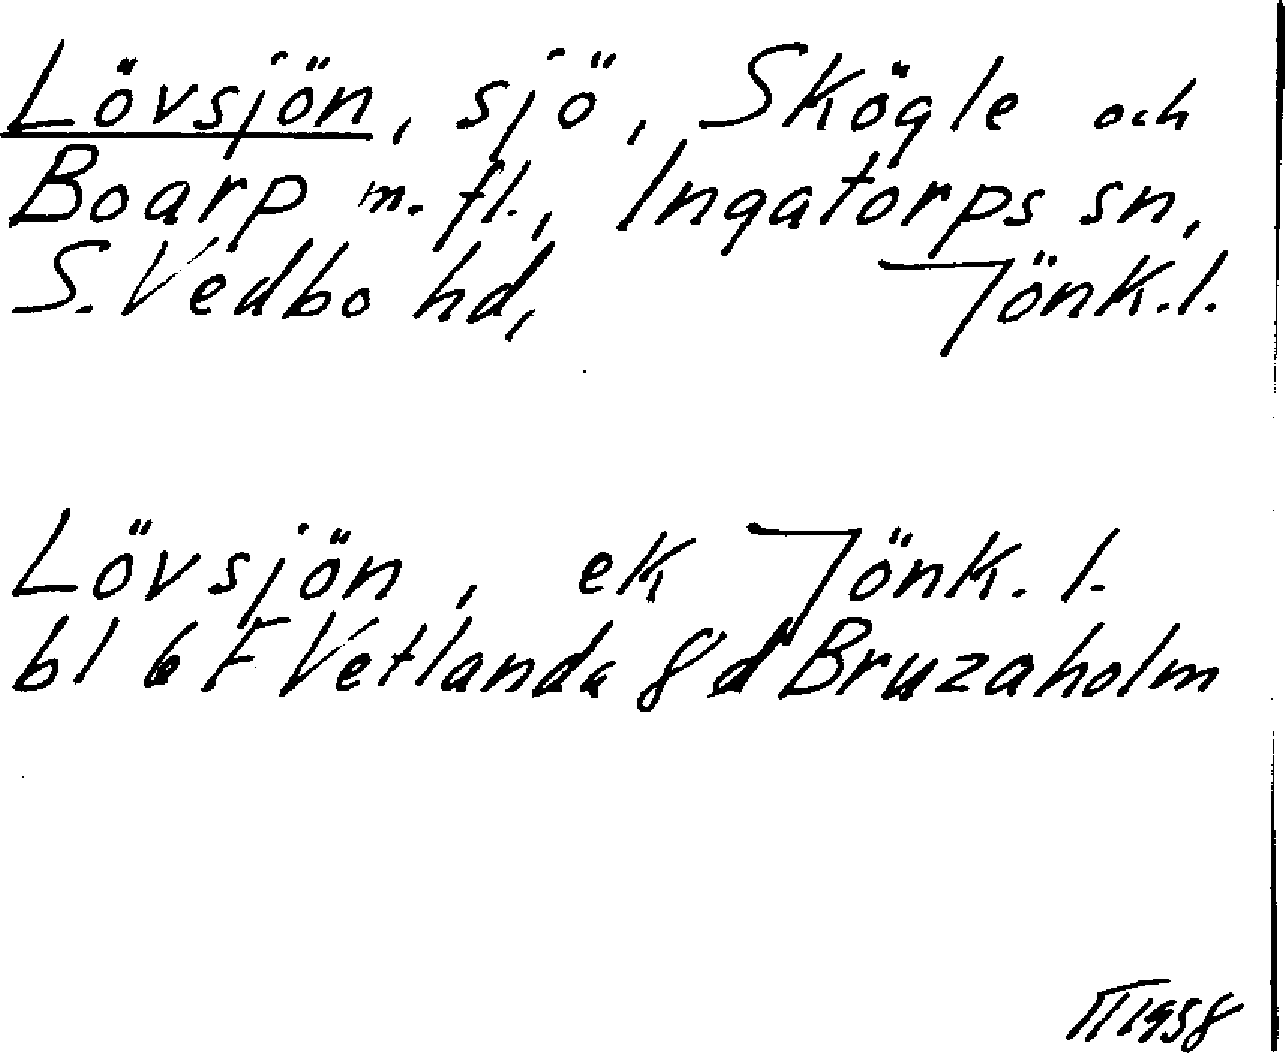 Lövsjön, sjö, Skögle och
Boarp m. fl., Ingatorps sn,
S. Vedbo hd, Jönk. l.
Lövsjön, ek Jönk. l.
bl 6 F Vetlanda 8 d Bruzaholm
1958